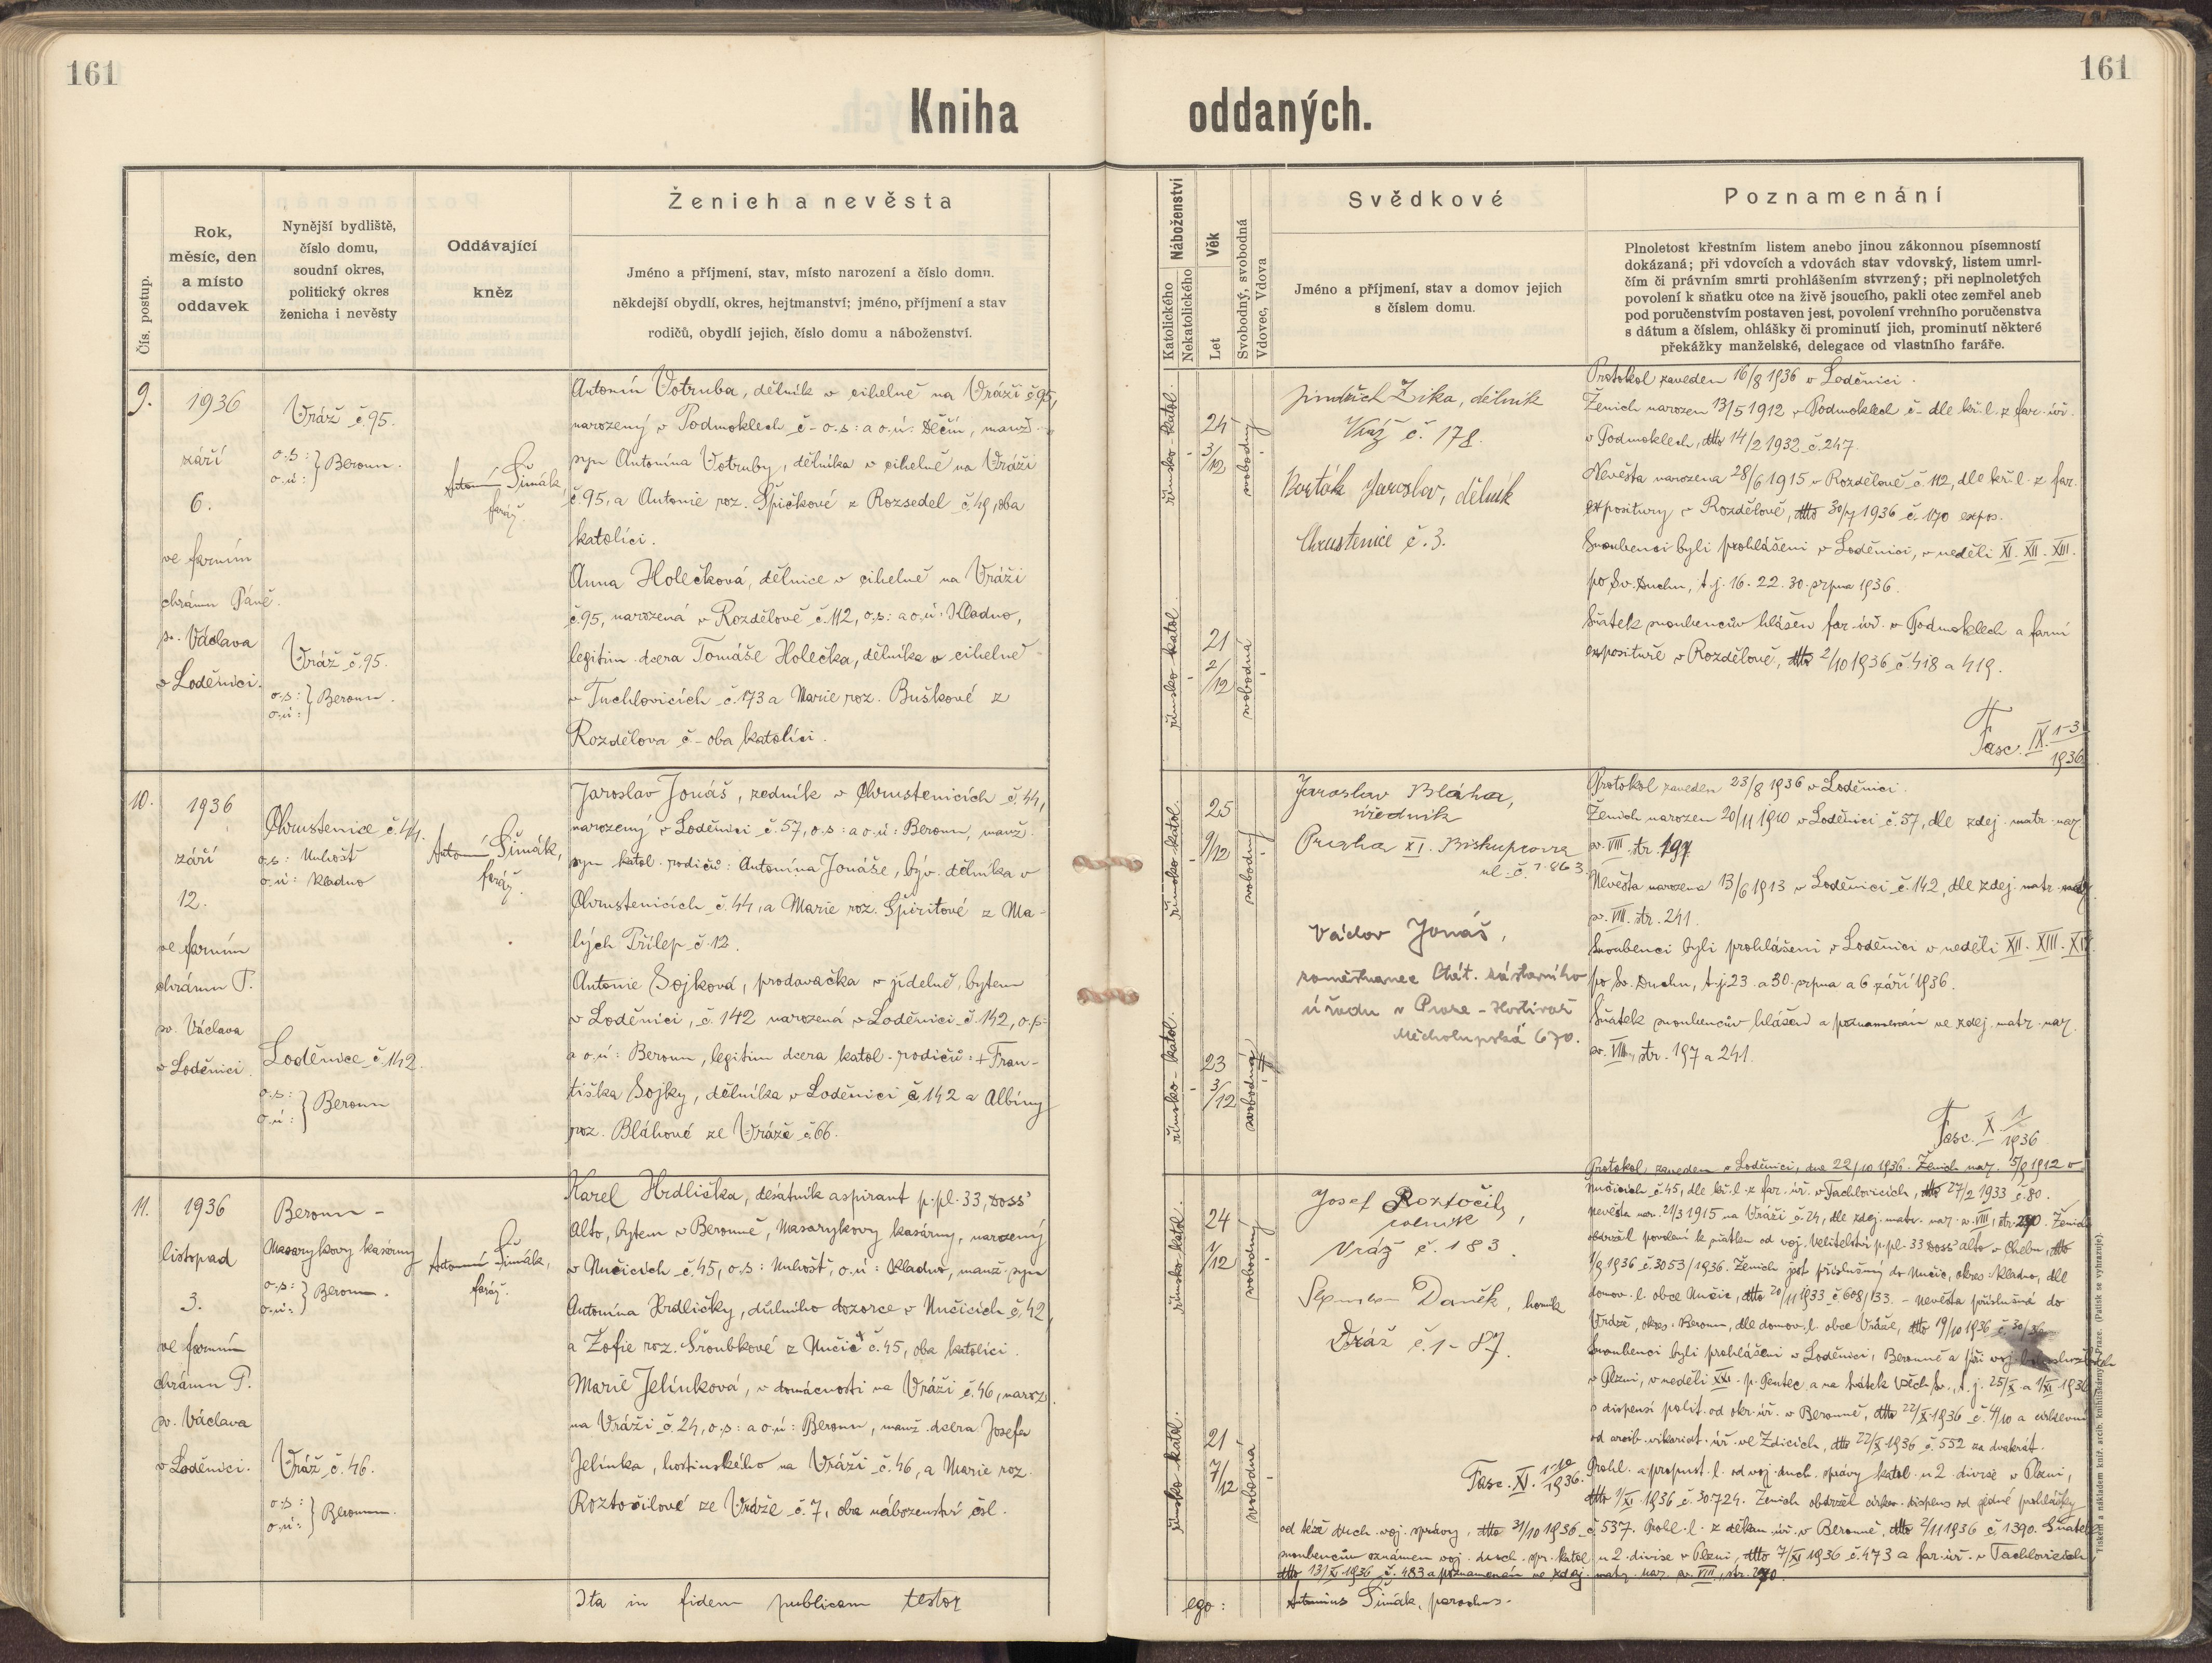 161
161
Kniha oddaných.
Čís. postup.
Rok,
měsíc, den
a místo
oddavek
Nynější bydliště,
číslo domu,
soudní okres,
politický okres
ženicha i nevěsty
Oddávající
kněz
Ženich a nevěsta
Jméno a příjmení, stav, místo narození a číslo domu.
někdejší obydlí, okres, hejtmanství; jméno, příjmení a stav
rodičů, obydlí jejich, číslo domu a náboženství.
Náboženství
Katolického
Nekatolického
Věk
Let
Svobodný, svobodná
Vdovec, Vdova
Svědkové
Jméno a příjmení, stav a domov jejich
s číslem domu.
Poznamenání
Plnoletost křestním listem anebo jinou zákonnou písemností
dokázaná; při vdovcích a vdovách stav vdovský, listem umrl-
čím či právním smrti prohlášením stvrzený; při neplnoletých
povolení k sňatku otce na živě jsoucího, pakli otec zemřel aneb
pod poručenstvím postaven jest, povolení vrchního poručenstva
s dátum a číslem, ohlášky či prominutí jich, prominutí některé
překážky manželské, delegace od vlastního faráře.
9.
1936
září
6.
ve farním
chrámu Páně
sv. Václava
v Loděnici.
Vráž č. 95.
o.s:
o.ú: } Beroun.
Vráž č. 95.
o.s:
o.ú: } Beroun.
Antonín Šimák,
farář.
Antonín Votruba, dělník v cihelně na Vráži č 95,
narozený v Podmoklech č - o.s: a o.ú: Děčín, manž.
syn Antonína Votruby, dělníka v cihelně na Vráži
č. 95, a Antonie roz. Špičkové z Rozsedel č. 49, oba
katolíci.
Anna Holečková, dělnice v cihelně na Vráži
č. 95, narozená v Rozdělově č. 112, o.s: a o.ú: Kladno,
legitim. dcera Tomáše Holečka, dělníka v cihelně
v Tuchlovicích č. 173 a Marie roz. Buškové z
Rozdělova č - oba katolíci.
římsko-katol.
24
3/12
svobodný
římsko-katol.
21
2/12
svobodná
Jindřich Zika, dělník
Vráž č. 178.
Barták Jaroslav, dělník
Chrustenice č. 3.
Protokol zaveden 16/8 1936 v Loděnici.
Ženich narozen 13/5 1912 v Podmoklech č - dle kř. l. z far. úř.
v Podmoklech, dtto 14/2 1932 č. 247.
Nevěsta narozena 28/6 1915 v Rozdělově č. 112, dle kř. l. z far.
expositury v Rozdělově, dtto 30/7 1936 č. 170 expos.
Snoubenci byli prohlášeni v Loděnici, v neděli XI. XII. XIII.
po Sv. Duchu, t.j. 16. 22. 30. srpna 1936.
Sňatek snoubencův hlášen far. úř. v Podmoklech a farní
expositure v Rozdělově, dtto 2/10 1936 č. 418 a 419.
Fasc. IX. 1-3/1936
10.
1936
září
12.
ve farním
chrámu P.
sv. Václava
v Loděnici.
Chrustenice č. 44.
o.s: Unhošť
o.ú: Kladno
Loděnice č. 142.
o.s:
o.ú: } Beroun
Antonín Šimák,
farář.
Jaroslav Jonáš, zedník v Chrustenicích č. 44,
narozený v Loděnici č. 57, o.s: a o.ú: Beroun, manž.
syn katol. rodičů: Antonína Jonáše, býv. dělníka v
Chrustenicích č. 44, a Marie roz. Špiritové z Ma-
lých Přílep č. 12.
Antonie Sojková, prodavačka v jídelně, bytem
v Loděnici, č. 142 narozená v Loděnici č. 142, o.s:
a o.ú: Beroun, legitim dcera katol. rodičů: + Fran-
tiška Sojky, dělníka v Loděnici č. 142 a Albíny
roz. Bláhové ze Vráže č. 66.
římsko-katol.
25
9/12
svobodný
římsko-katol.
23
3/12
svobodná
Jaroslav Bláha,
úředník
Praha XI. Biskupcova
ul. č. 1863.
Václav Jonáš,
zaměstnanec Stát. zástavního
úřadu v Praze - Hostivař
Měcholupská 670.
Protokol zaveden 23/8 1936 v Loděnici.
Ženich narozen 20/11 1910 v Loděnici č. 57, dle zdej. matr. nar.
sv. VIII. str. 197.
Nevěsta narozena 13/6 1913 v Loděnici č. 142, dle zdej. matr. nar.
sv. VIII. str. 241.
Snoubenci byli prohlášeni v Loděnici v neděli XII. XIII. XIV.
po Sv. Duchu, t.j. 23. a 30. srpna a 6 září 1936.
Sňatek snoubencův hlášen a poznamenán ve zdej. matr. nar.
sv. VIII., str. 197 a 241.
Fasc. X 1/1936
11.
1936
listopad
3.
ve farním
chrámu P.
sv. Václava
v Loděnici.
Beroun -
Masarykovy kasárny
o.s:
o.ú: } Beroun.
Vráž č. 46.
o.s:
o.ú: } Beroun.
Antonín Šimák,
farář.
Karel Hrdlička, desátník aspirant p. pl. 33, Doss'
Alto, bytem v Berouně, Masarykovy kasárny, narozený
v Nučicích č. 45, o.s: Unhošť, o.ú: Kladno, manž. syn
Antonína Hrdličky, důlního dozorce v Nučicích č. 42,
a Žofie roz. Šroubkové z Nučic č. 45, oba katolíci.
Marie Jelínková, v domácnosti na Vráži č. 46, naroz.
na Vráži č. 24, o.s: a o.ú: Beroun, manž. dcera Josefa
Jelínka, hostinského na Vráži č. 46, a Marie roz.
Roztočilové ze Vráže č. 7, oba náboženství čsl.
římsko-katol.
24
1/12
svobodný
římsko-katol.
21
7/12
svobodná
Josef Roztočil,
rolník
Vráž č. 183.
Daněk, horník
Vráž č. 1-87.
Fasc. XI. 1-10/1936.
Protokol zaveden v Loděnici, dne 22/10 1936. Ženich nar. 5/9 1912 v
Nučicích č. 45, dle kř. l. z far. úř. v Tachlovicích, dtto 27/2 1933 č. 80.
Nevěsta nar. 21/3 1915 na Vráži č. 24, dle zdej. matr. nar. sv. VIII, str. 270. Ženich
obdržel povolení k sňatku od voj. velitelství p. pl. 33 Doss' alto v Chebu, dtto
1/9 1936 č. 3053/1936. Ženich jest příslušný do Nučic, okres: Kladno, dle
domov. l. obce Nučic, dtto 20/11 1933 č. 608/33. - Nevěsta příslušná do
Vráže, okres: Beroun, dle domov. l. obce Vráže, dtto 19/10 1936 č. 30/36
Snoubenci byli prohlášeni v Loděnici, Berouně a při voj.
v Plzni, v neděli XXI. p. Pentec. a na svátek Všech Sv., t.j. 25/X. a 1/XI. 1936
s dispensí polit. od okr. úř. v Berouně, dtto 22/X. 1936 č. 4/10 a církevní
od arcib. vikariat. úř. ve Zdicích, dtto 22/X 1936 č. 552 za dvakrát.
Prohl. a propust. l. od voj. duch. správy katol. u 2. divise v Plzni,
dtto 1/XI. 1936 č. 30.724. Ženich obdržel církev. dispens od jedné prohlášky
od téže duch. voj. správy, dtto 31/10 1936 č. 537. Prohl. l. z děkan. úř. v Berouně, dtto 2/11 1936 č. 1390. Sňatek
snoubencův oznámen voj. duch. spr. katol. u 2. divise v Plzni, dtto 7/XI 1936 č. 473 a far. úř. v Tachlovicích,
dtto 13/XI. 1936 č. 483 a poznamenán ve zdej. matr. nar. sv. VIII., str. 270.
Ita in fidem publicam testor
ego: Antonius Šimák, parochus.
Tiskem a nákladem kníž. arcib. knihtiskárny v Praze. (Patisk se vyhrazuje).